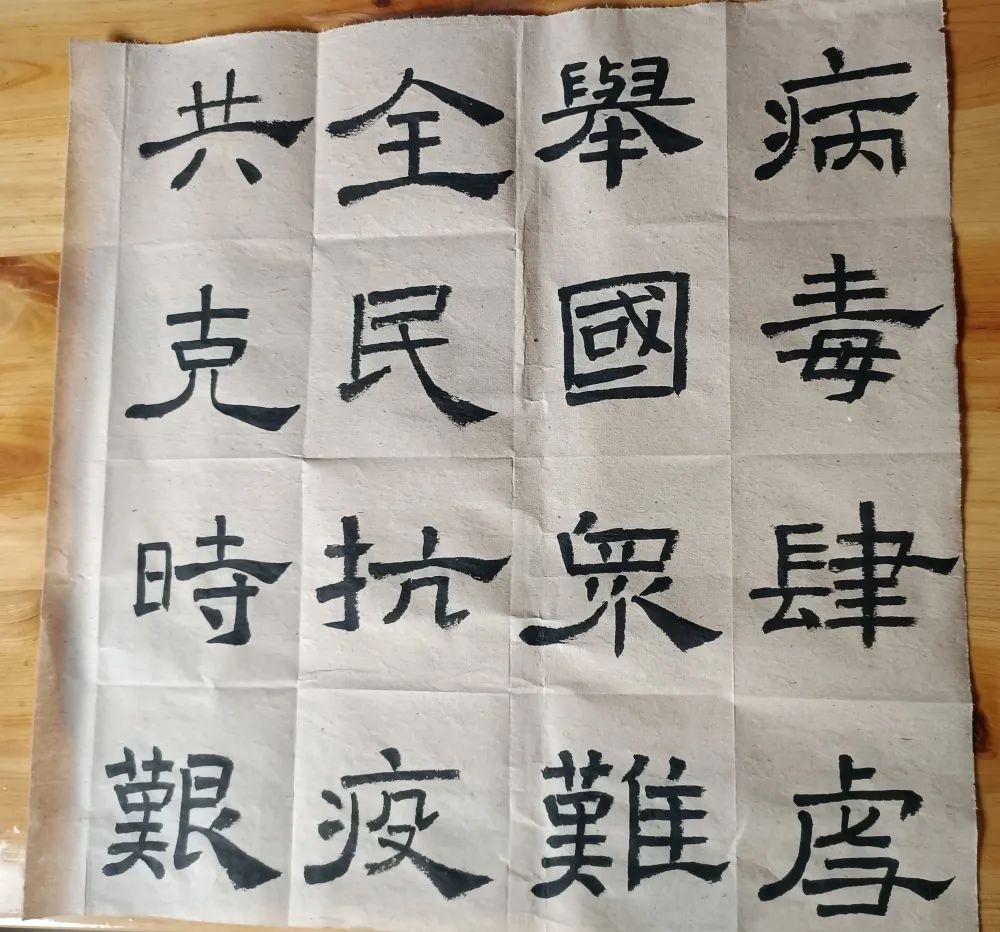 病毒肆虐
舉國眾難
全民抗疫
共克時艱